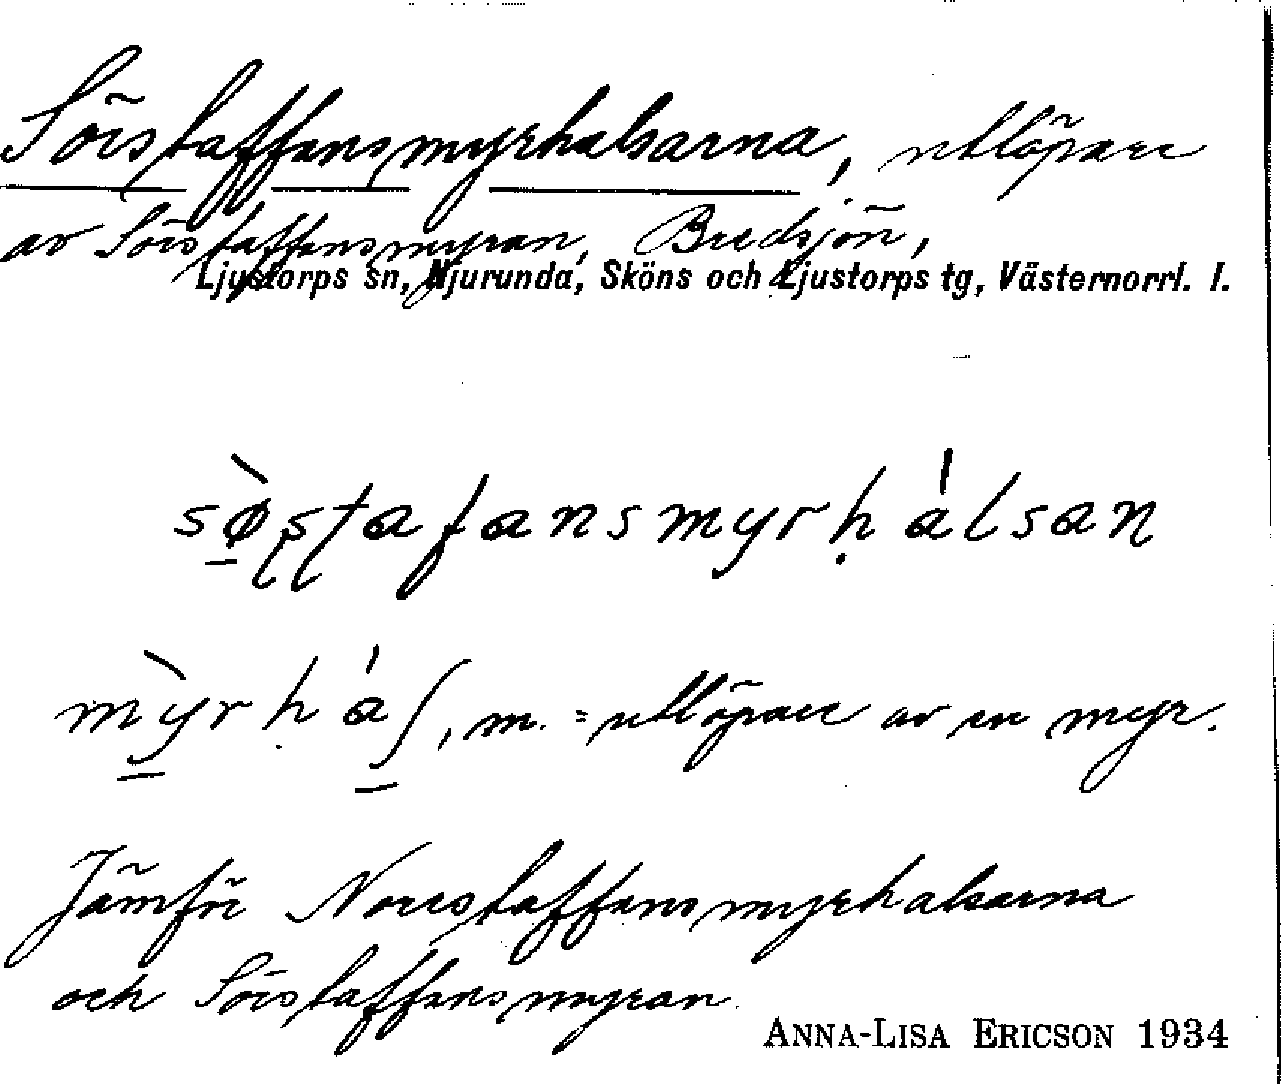 Sörstaffansmyrhalsarna, utlöpare
av Sörstaffansmyran, Bredsjön,
Ljustorps sn, Njurunda, Sköns och Ljustorps tg, Västernorrl. l.
sø̀ʂʈafansmyrhálsan
mỳrháls, m. = utlöpare av en myr.
Jämför Norrstaffansmyrhalsarna
och Sörstaffansmyran.
ANNA-LISA ERICSON 1934